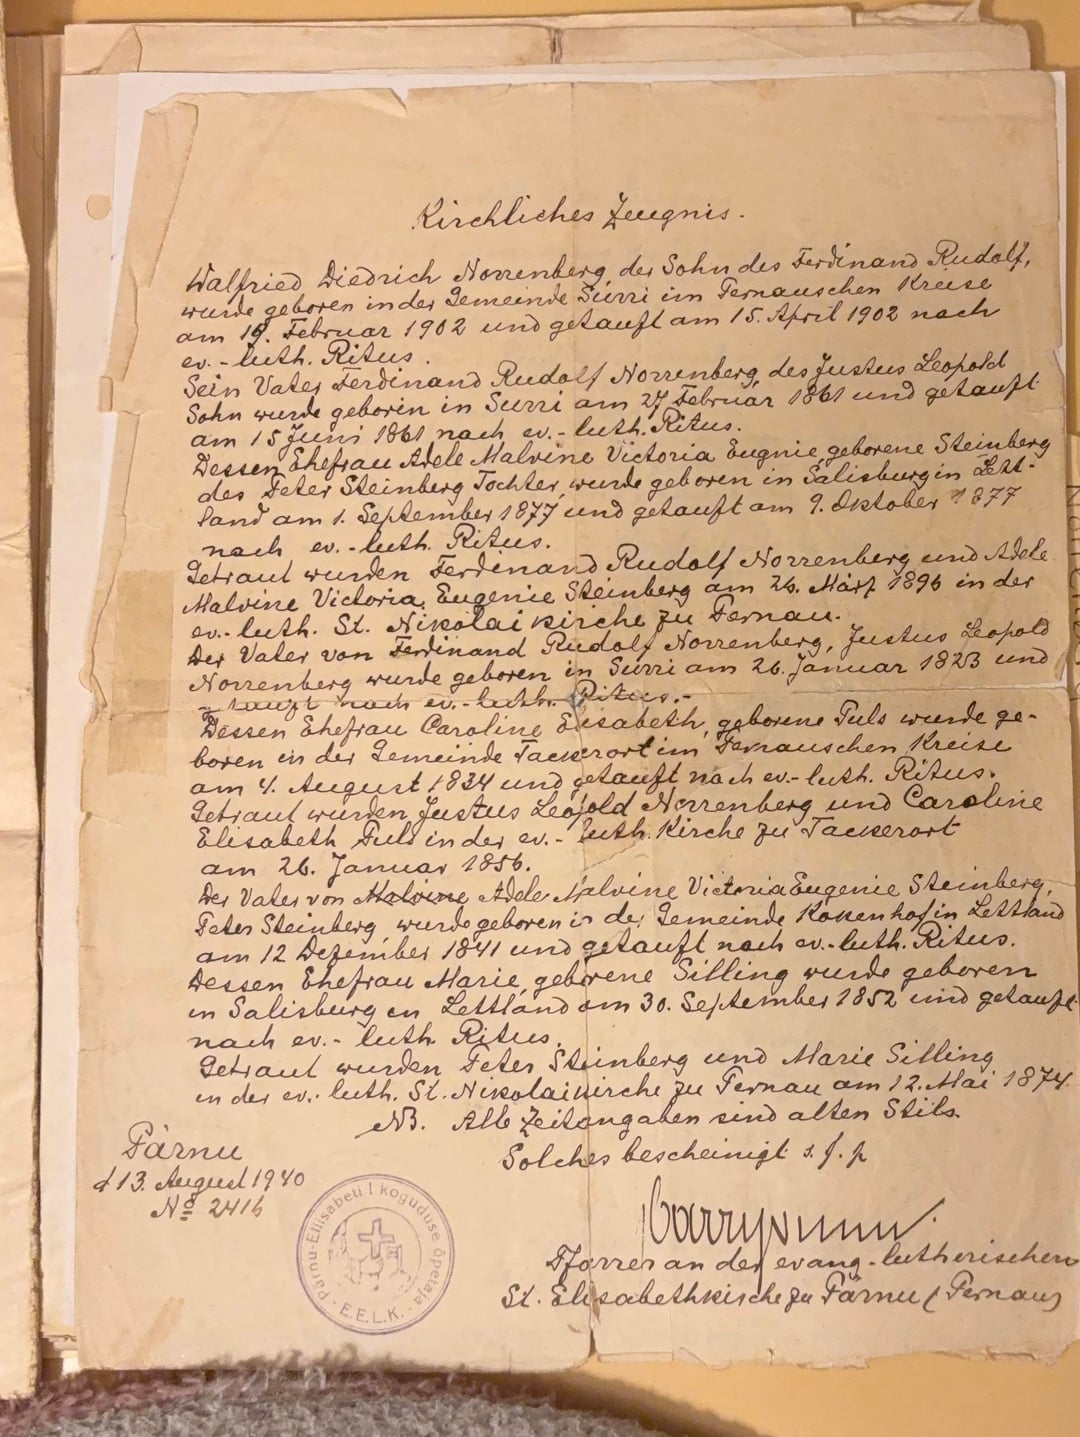 Kirchliches Zeugnis.
Walfried Diedrich Norrenberg, der Sohn des Ferdinand Rudolf,
wurde geboren in der Gemeinde Surri im Pernauschen Kreise
am 19. Februar 1902 und getauft am 15. April 1902 nach
ev.-luth. Ritus.
Sein Vater Ferdinand Rudolf Norrenberg, des Justus Leopold
Sohn wurde geboren in Surri am 27 Februar 1861 und getauft
am 15 Juni 1861 nach ev.-luth. Ritus.
Dessen Ehefrau Adele Malvine Victoria Eugnie, geborene Steinberg
des Peter Steinberg Tochter, wurde geboren in Salisburg in Lett-
land am 1. September 1877 und getauft am 9. Oktober 1877
nach ev.-luth. Ritus.
Getraut wurden Ferdinand Rudolf Norrenberg und Adele
Malvine Victoria Eugenie Steinberg am 26. März 1896 in der
ev.-luth. St. Nikolaikirche zu Pernau.
Der Vater von Ferdinand Rudolf Norrenberg, Justus Leopold
Norrenberg wurde geboren in Surri am 26. Januar 1823 und
getauft nach ev.-luth. Ritus.-
Dessen Ehefrau Caroline Elisabeth, geborene Puls wurde ge-
boren in der Gemeinde Tackerort im Pernauschen Kreise
am 4. August 1834 und getauft nach ev.-luth. Ritus.
Getraut wurden Justus Leopold Norrenberg und Caroline
Elisabeth Puls in der ev.-luth. Kirche zu Tackerort
am 26. Januar 1856.
Der Vater von Malvine Adele Malvine Victoria Eugenie Steinberg,
Peter Steinberg, wurde geboren in der Gemeinde Kokenhof in Lettland
am 12 Dezember 1841 und getauft nach ev.-luth. Ritus.
Dessen Ehefrau Marie, geborene Silling wurde geboren
in Salisburg in Lettland am 30. September 1852 und getauft
nach ev.-luth. Ritus.
Getraut wurden Peter Steinberg und Marie Silling
in der ev.-luth. St. Nikolaikirche zu Pernau am 12. Mai 1874.
NB. Alle Zeitangaben sind alten Stils.
Solches bescheinigt s. f. p
Pärnu
d 13. August 1940
No 2416
Pärnu-Eliisabeti I koguduse õpetaja
E.E.L.K.
Pfarrer an der evang.-lutherischen
St. Elisabethkirche zu Pärnu (Pernau)